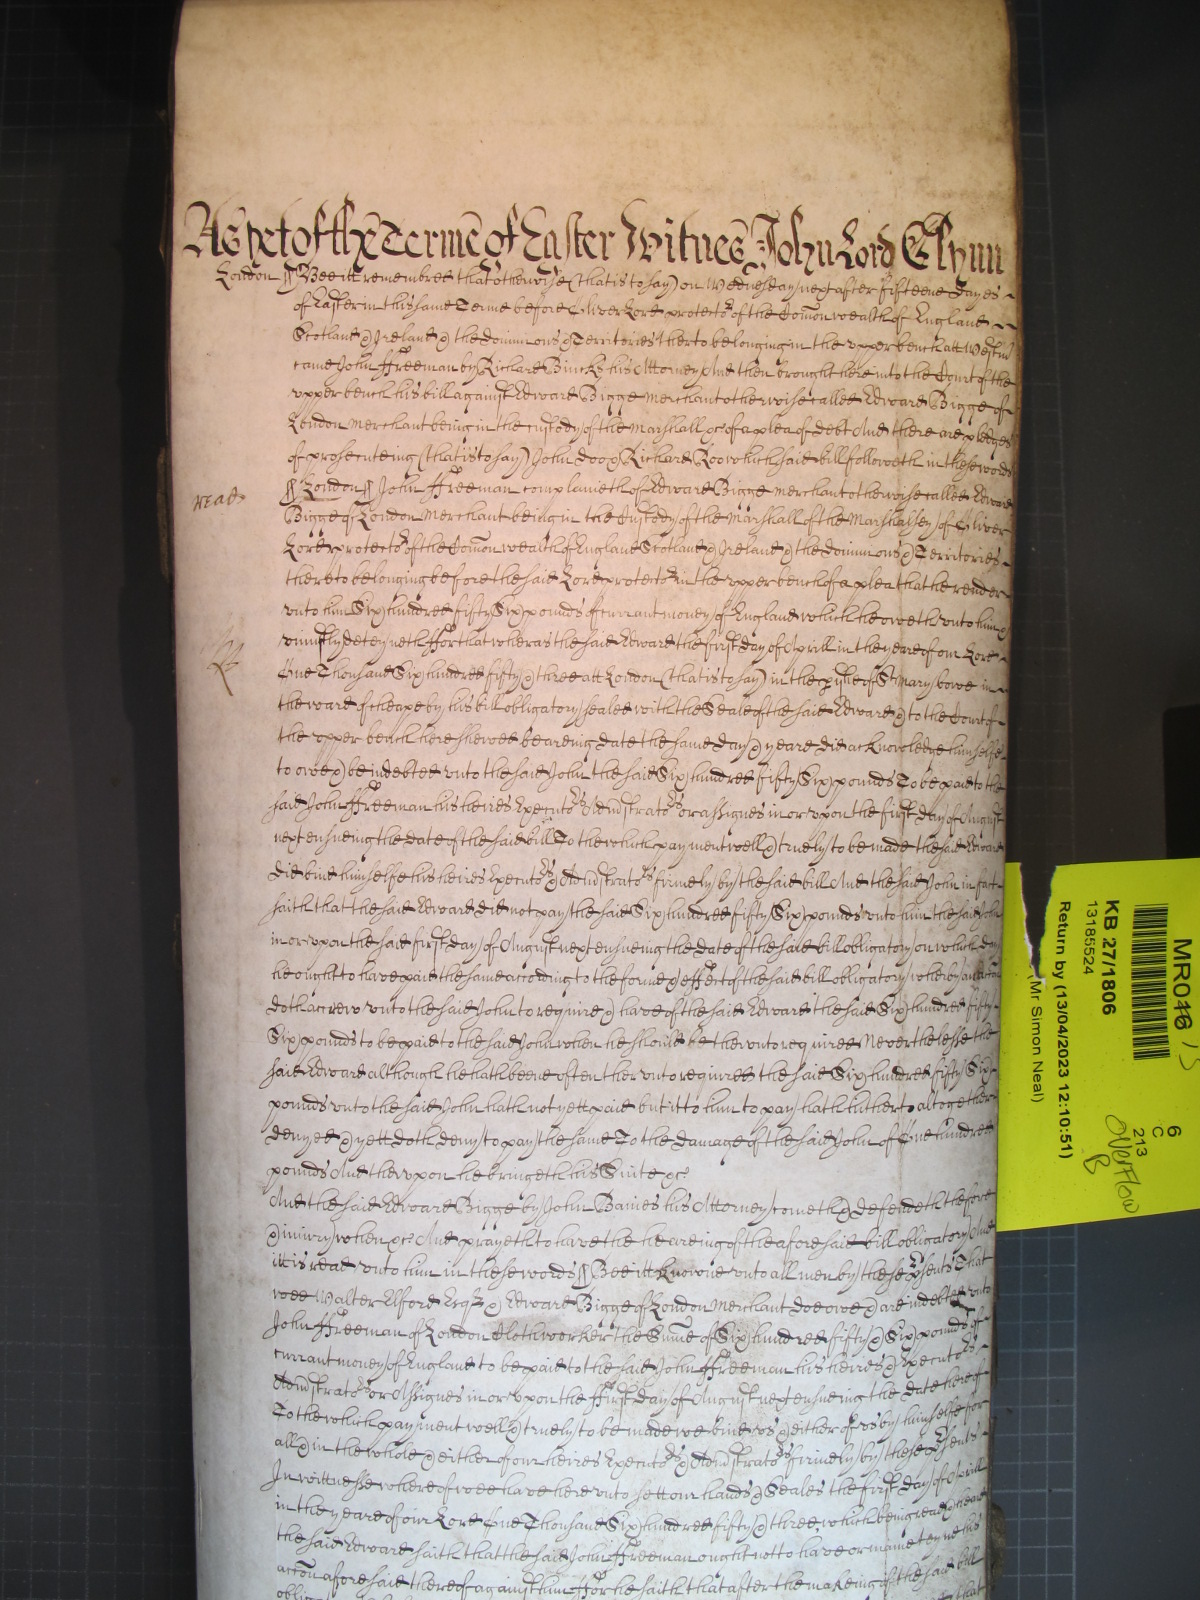 As yet of the Terme of Easter Witnes John Lord Glynn
London ss Bee itt remembred that otherwise (that is to say) on Wednesday next after fifteene dayes
of Easter in this same Terme before Oliver Lord protector of the Com̄on wealth of England
Scotland & Ireland & the dominions & Territories therto belonging in the upper bench att Westm̄
came John Ffreeman by Richard Bincks his Attorney And then brought here into the Court of the
upper bench his bill against Edward Bigge merchant otherwise called Edward Bigge of
London merchant being in the custody of the Marshall &c of a plea of debt And there are pledges
of prosecuteing (that is to say) John Doo & Richard Roo which said bill followeth in these words
read
ss London ss John Ffreeman complaineth of Edward Bigge merchant otherwise called Edward
Bigge of London Merchant being in the Custody of the Marshall of the Marshallsey of Oliver
Lord protector of the Com̄on wealth of England Scotland & Ireland & the dominions & Territories
thereto belonging before the said Lord protector in the upper bench of a plea that he render
unto him Six hundred fifty Six pounds of currant money of England which he oweth unto him &
uniustly deteyneth Ffor that wheras the said Edward the first day of Aprill in the yeere of our Lord
One Thousand Six hundred fifty & three att London (that is to say) in the p̲ishe of St mary bowe in
the ward of cheape by his bill obligatory sealed with the Seale of the said Edward & to the Court of
the upper bench here shewed beareing date the same day & yeare did acknowledge himselfe
to owe & be indebted unto the said John the said Six hundred fifty Six pounds To be paid to the
said John Ffreeman his heires Executors Administrators or assignes in or upon the first day of August
next ensueing the date of the said bill To the which payment well & truely to be made the said Edward
did bind himselfe his heires Executors & Administrators firmely by the said bill And the said John in fact
saith that the said Edward did not pay the said Six hundred fifty Six pounds unto him the said John
in or upon the said first day of August next ensueing the date of the said bill obligatory on which day
he ought to have paid the same according to the forme & effect of the said bill obligatory wherby an acc̄on
doth accrew unto the said John to require & have of the said Edward the said Six hundred fifty
Six pounds to be paid to the said John when he should be therunto required Neverthelesse the
said Edward although he hath beene often therunto required the said Six hundred fifty Six
pounds unto the said John hath not yett paid but itt to him to pay hath hitherto altogether
denyed & yett doth deny to pay the same To the damage of the said John of One hundred
pounds And therupon he bringeth his Suite &c
And the said Edward Bigge by John Baines his Attorney cometh & defendeth the force
& iniury when &c And prayeth to have the heareing of the aforesaid bill obligatory And
itt is read unto him in these words ss Bee itt knowne unto all men by these p̲sents That
wee Walter Elford Esqr & Edward Bigge of London Merchant doe owe & are indebted unto
John Ffreeman of London Clothworker the Sum̄e of Six hundred fifty & Six pounds of
currant money of England to be paid to the said John Ffreeman his heires & Executors
Administrators or Assignes in or upon the Ffirst day of August next ensueing the date hereof
To the which payment well & truely to be made we bind us & either of us by himselfe for
all & in the whole & either of our heires Executors & Administrators firmely by these p̲sents
In wittnesse whereof wee have here unto sett our hands & Seales the first day of Aprill
in the yeare of our Lord One Thousand Six hundred fifty & three, which being read & heard
the said Edward saith that the said John Ffreeman ought not to have or mainteyne his
acc̄on aforesaid thereof against him Ffor he saith that after the makeing of the said bill
MR046
KB 27/1806
13185524
Return by (13/04/2023 12:10:51)
(Mr Simon Neal)
6
C
213
Overflow
B